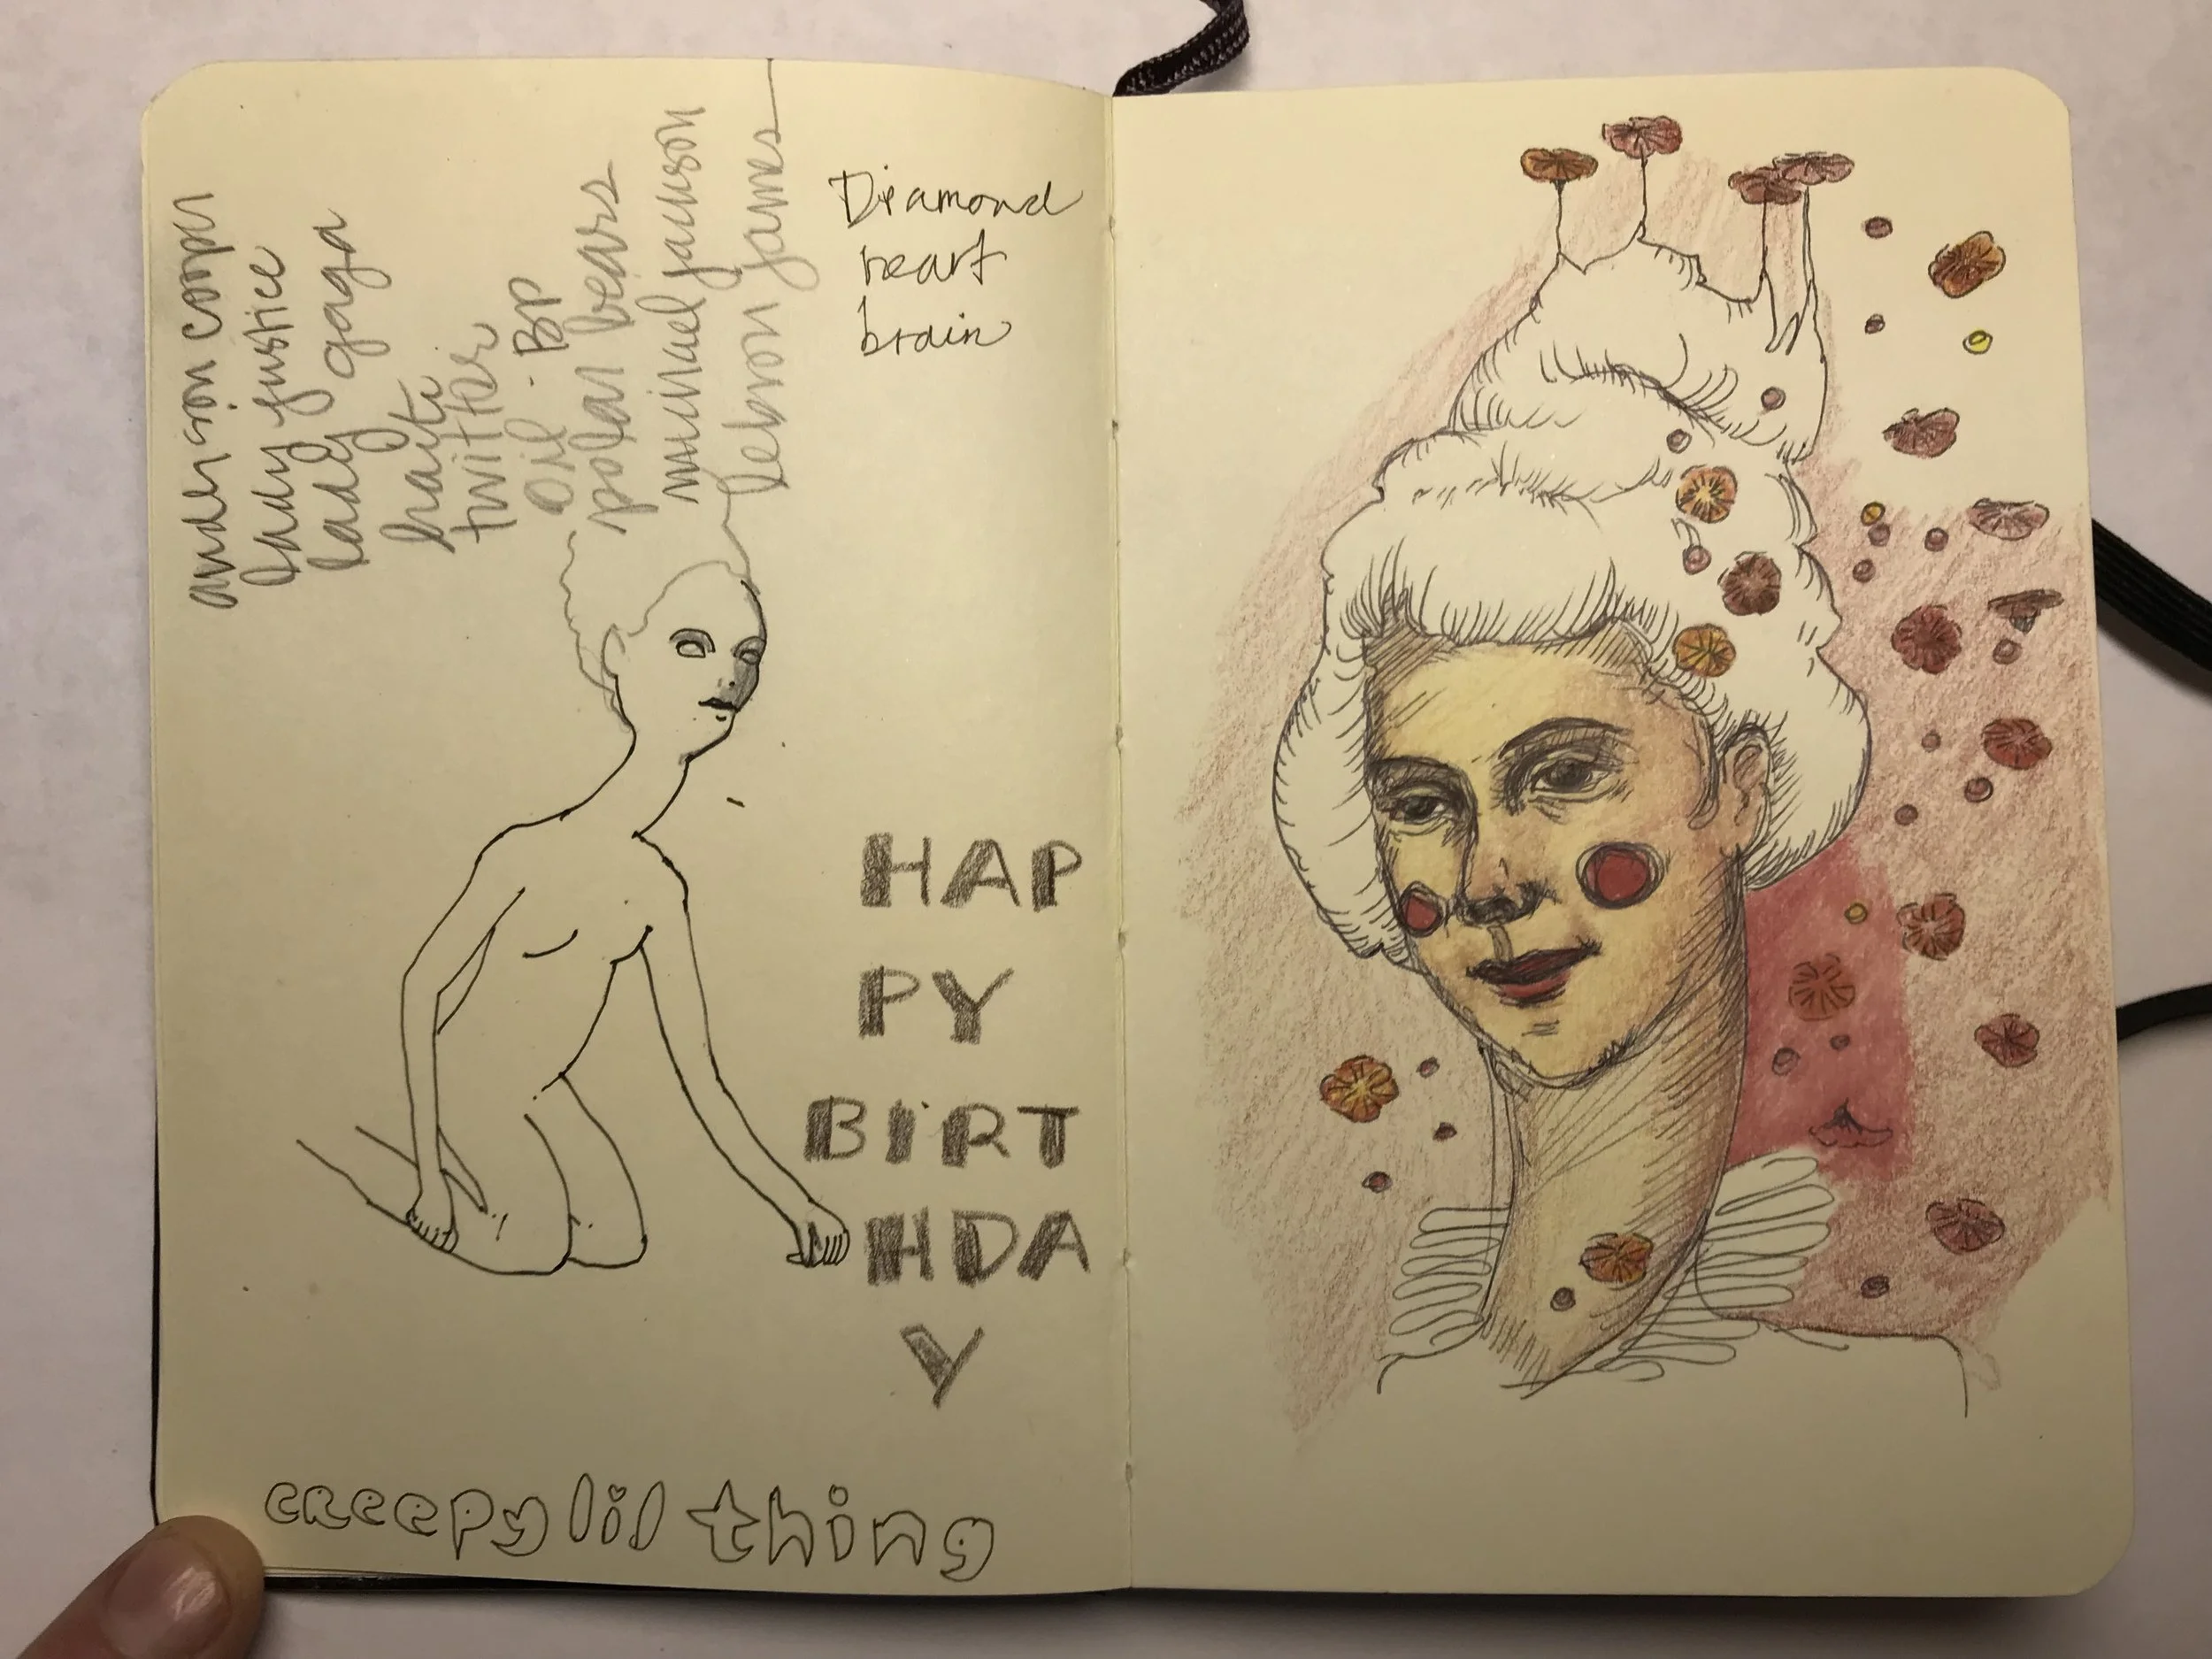 anderson cooper
lady justice
lady gaga
haiti
twitter
oil - BP
polar bears
michael jackson
lebron james
Diamond
heart
brain
HAP
PY
BIRT
HDA
Y
creepy lil thing